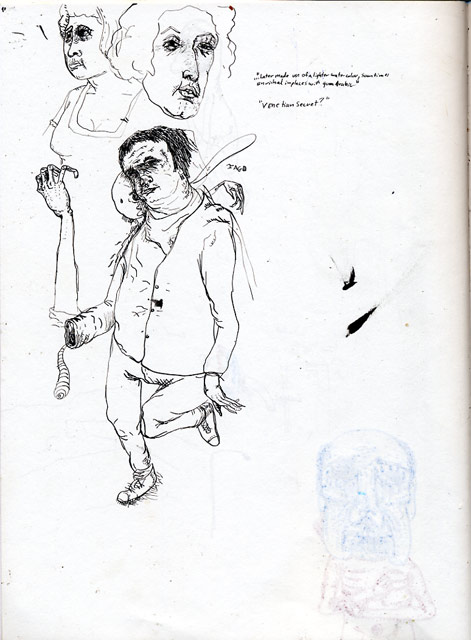 "Later made use of a lighter water color, sometimes
enriched in places with gum arabic"
"Venetian Secret?"
IAGO